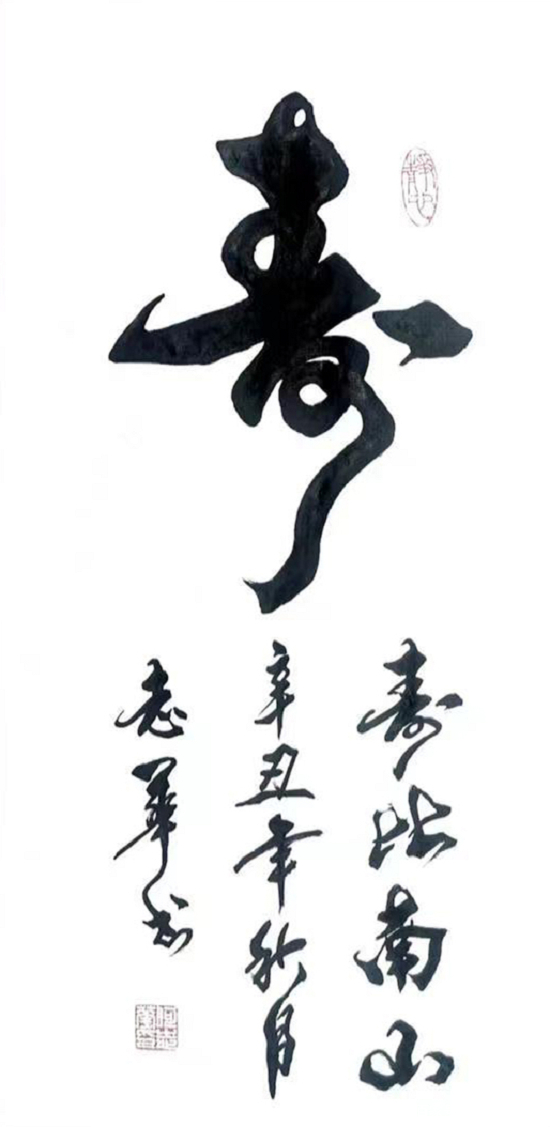 寿
寿比南山
辛丑年秋月
志華书